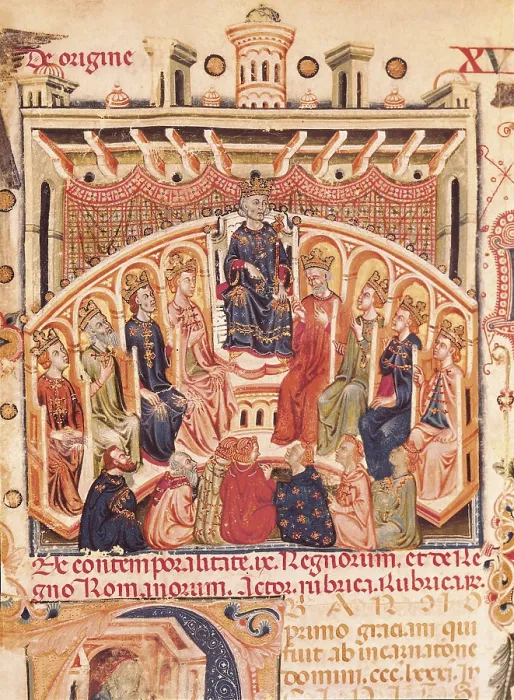 De origine
XV
De contemporalitate. ix. Regnorum. et de Re
gno Romanorum. Actor. rubrica. Rubrica. ix.
primo graciani qui
fuit ab incarnatone
domini. ccc. lxxxi. iy